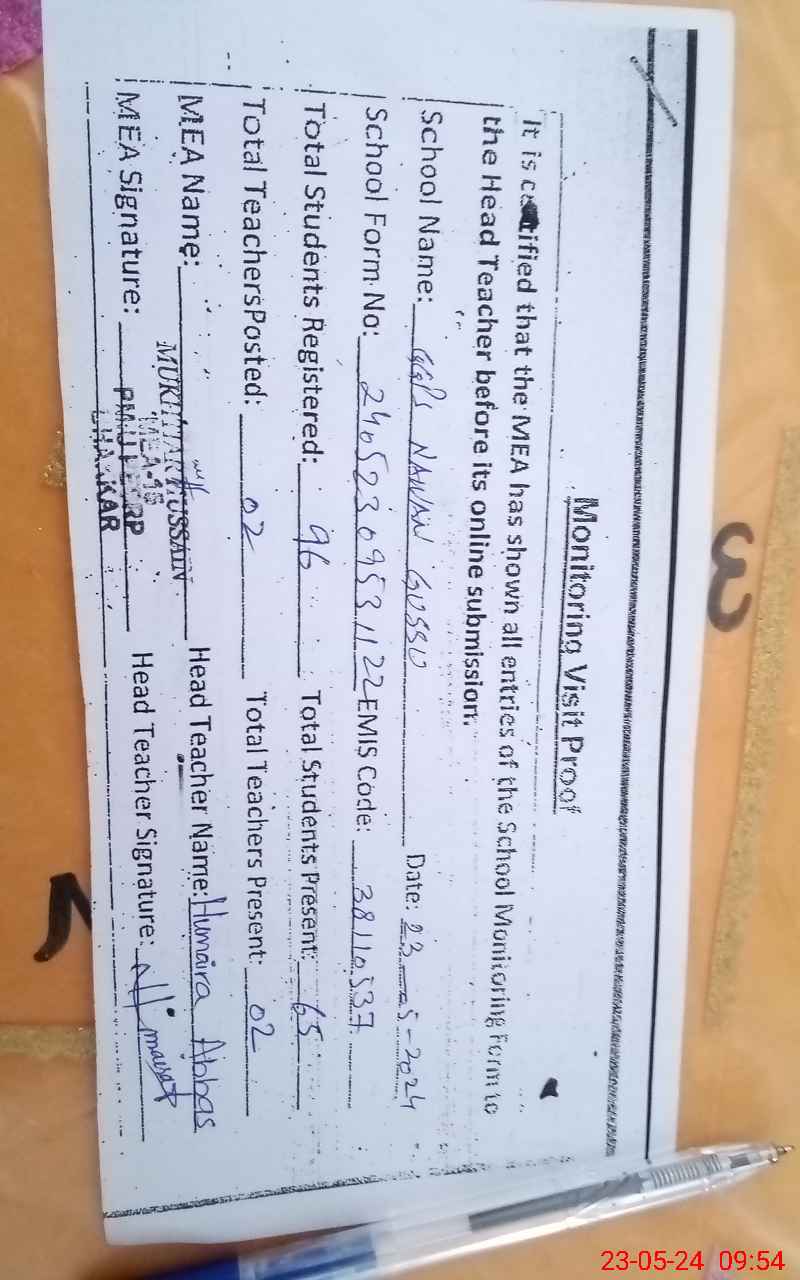 Monitoring Visit Proof
It is certified that the MEA has shown all entries of the School Monitoring Form to
the Head Teacher before its online submission.
School Name: GGPS NAWAN GUSSU Date: 23-05-2024
School Form No: 24052309531122 EMIS Code: 38110537
Total Students Registered: 96 Total Students Present: 65
Total TeachersPosted: 02 Total Teachers Present: 02
MEA Name: MUKHTAR HUSSAIN Head Teacher Name: Humaira Abbas
MEA-15
MEA Signature: Head Teacher Signature:
23-05-24 09:54